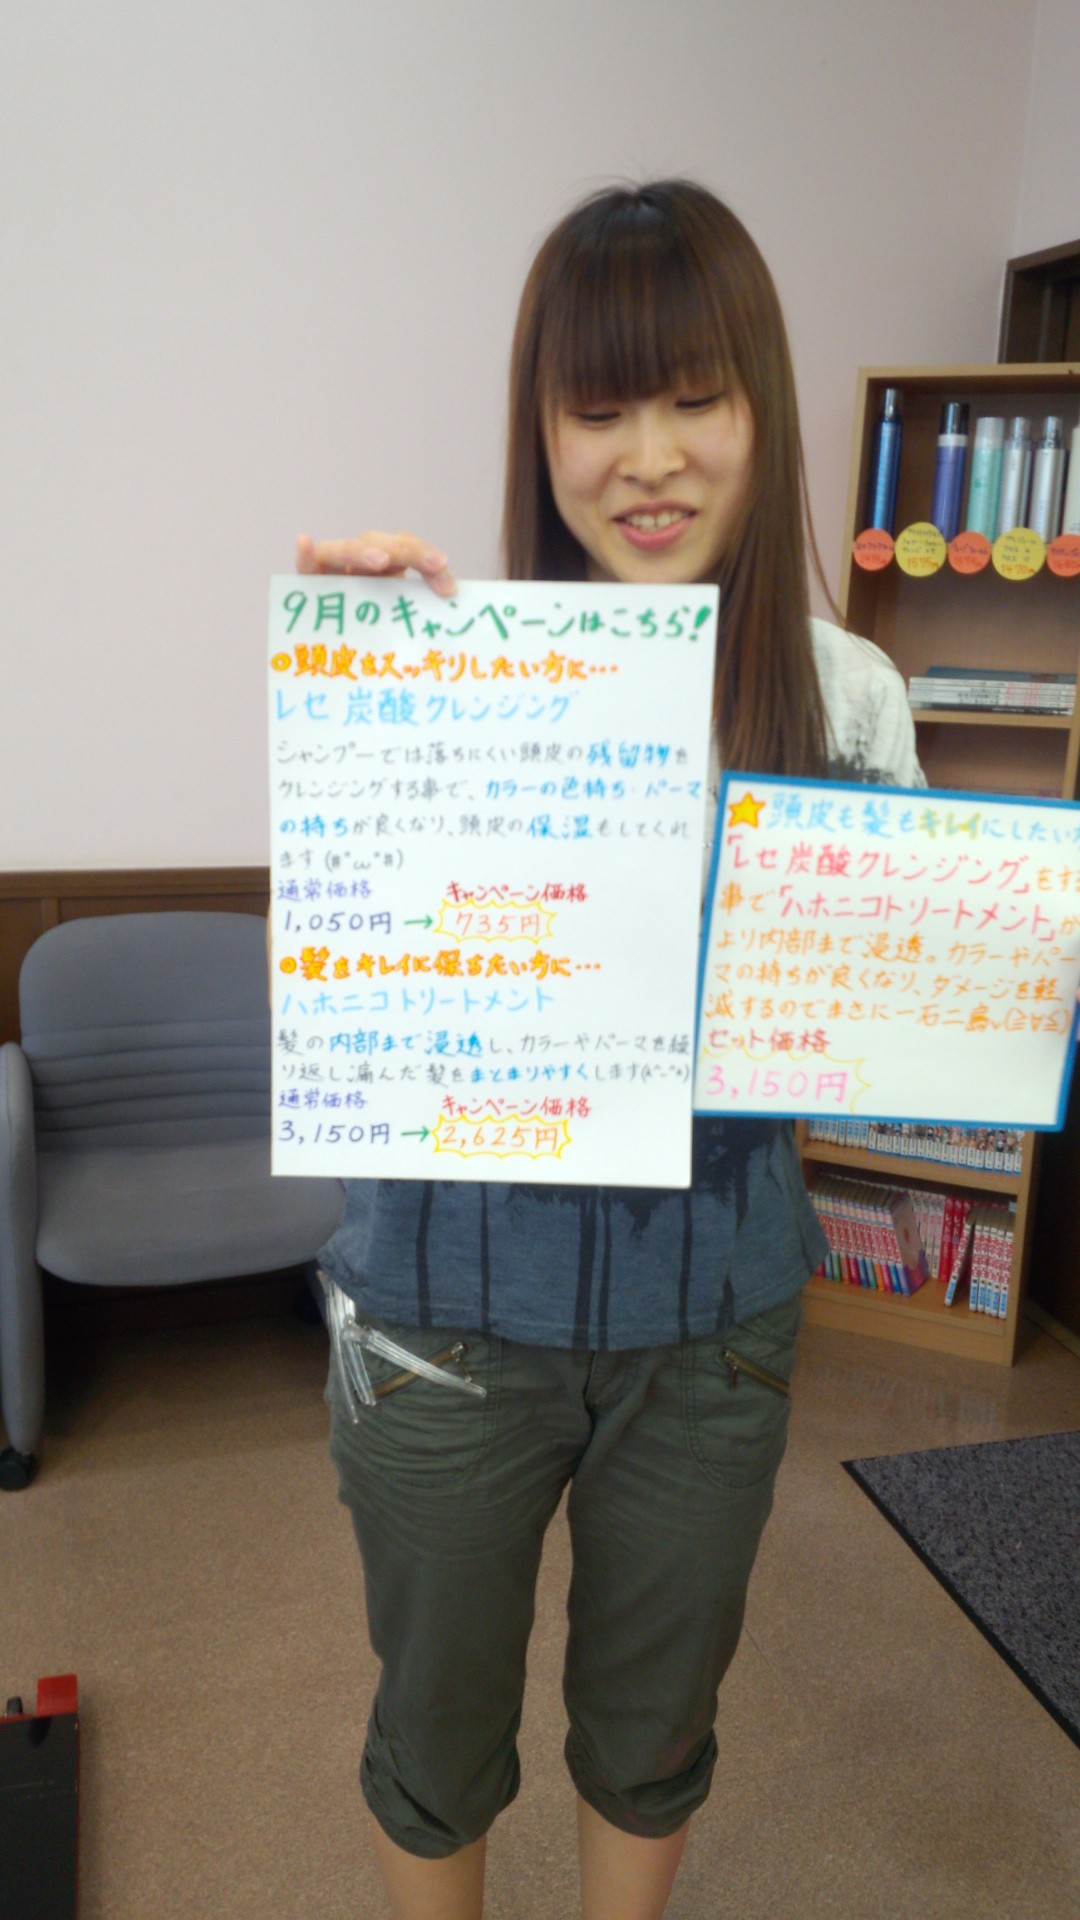 9月のキャンペーンはこちら!
頭皮をスッキリしたい方に…
レセ 炭酸クレンジング
シャンプーでは落ちにくい頭皮の残留物を
クレンジングする事で、カラーの色持ち・パーマ
の持ちが良くなり、頭皮の保湿もしてくれ
ます(#^ω^#)
通常価格 キャンペーン価格
1,050円→735円
髪をキレイに保ちたい方に…
ハホニコトリートメント
髪の内部まで浸透し、カラーやパーマを繰
り返し痛んだ髪をまとまりやすくします(*^-^*)
通常価格 キャンペーン価格
3,150円→2,625円
★頭皮も髪もキレイにしたい
「レセ炭酸クレンジング」をす
事で「ハホニコトリートメント」が
より内部まで浸透。カラーやパー
マの持ちが良くなり、ダメージを軽
減するのでまさに一石二鳥(≧∀≦)
セット価格
3,150円